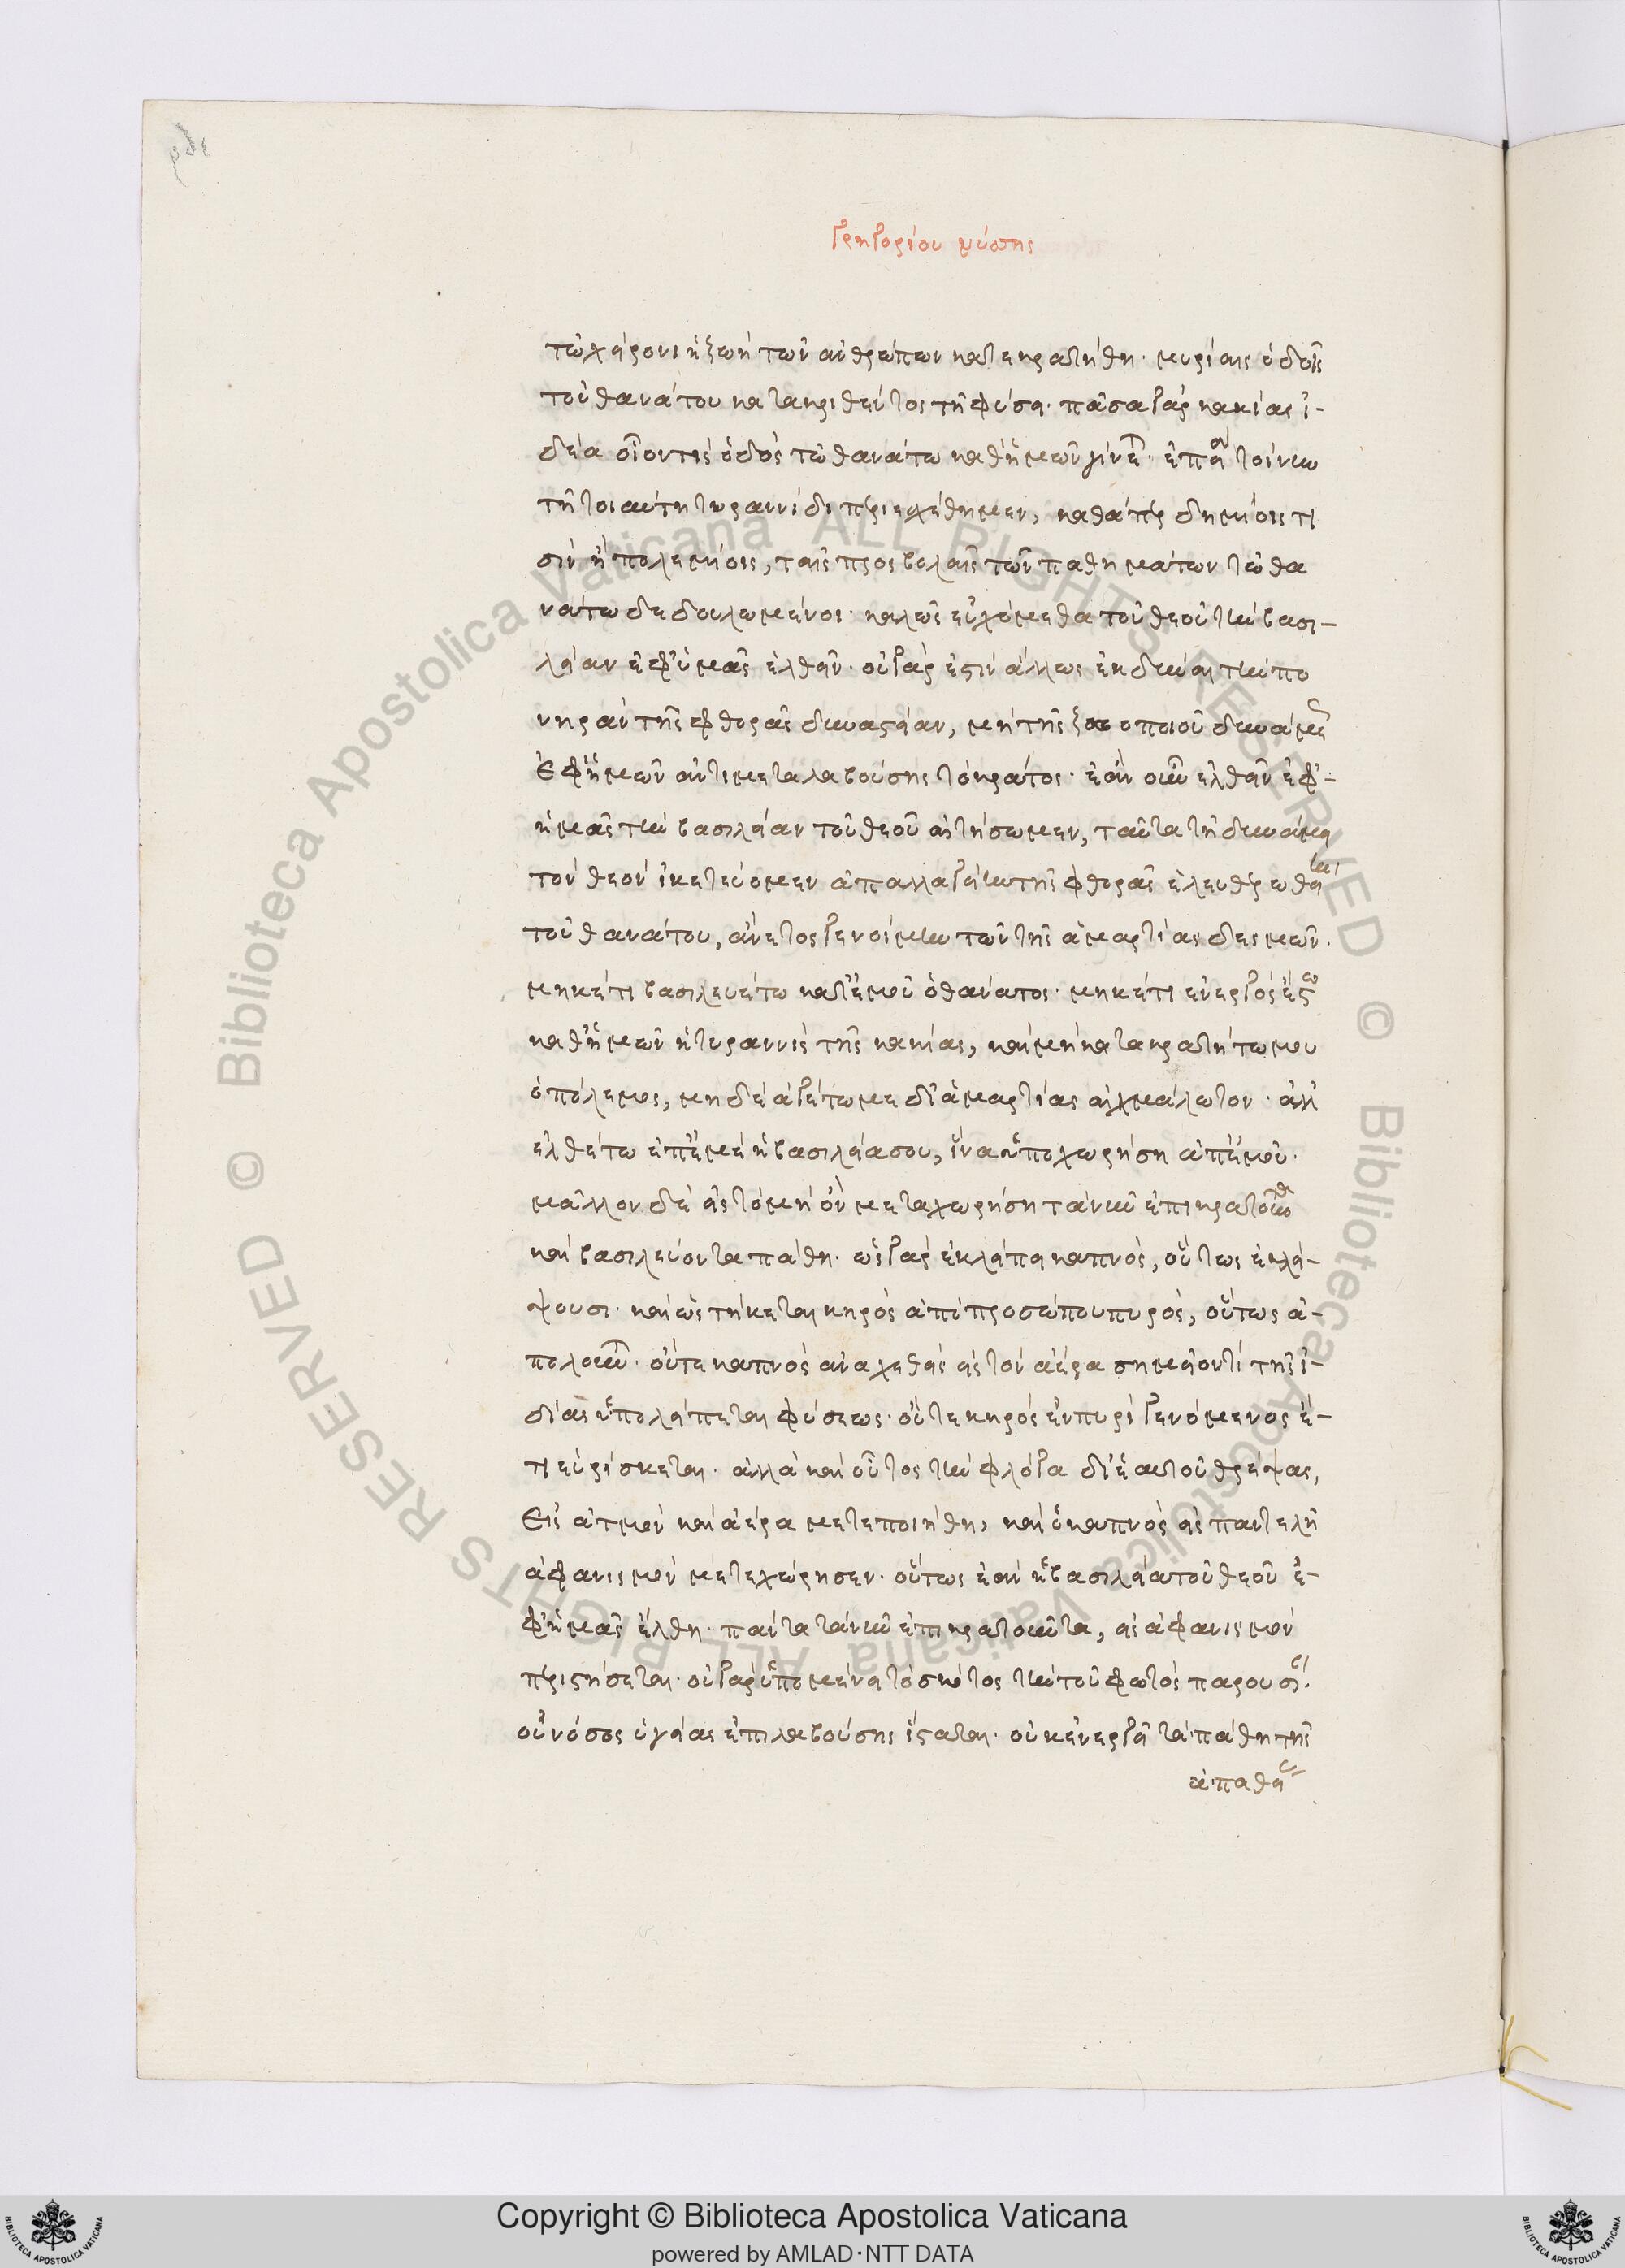 ρλε
Γρηγορίου νύσσης
τῶ χείρονι ἡ ζωὴ τῶν ἀνθρώπων κατεκρατήθη· μυρίαις ὁδοῖς
τοῦ θανάτου κατακριθέντος τῆ φύσει· πᾶσα γὰρ κακίας ἰ-
δέα οἷόν τις ὁδὸς τῶ θανάτω καθ' ἡμῶν γίνεται· ἐπεὶ τοίνυν
τῆ τοιαύτη τυραννίδι περιεχέθημεν, καθάπερ δημίοις τι
σὶν ἢ πολεμίοις, ταῖς προσβολαῖς τῶν παθημάτων τῶ θα
νάτω δεδουλωμένοι· καλῶς εὐχόμεθα τοῦ θεοῦ τὴν βασι-
λείαν ἐφ' ἡμᾶς ἐλθεῖν· οὐ γὰρ ἔστιν ἄλλως ἐκδῦναι τὴν πο
νηρὰν τῆς φθορᾶς δυναστείαν, μὴ τῆς ζωοποιοῦ δυνάμεως
ἐφ' ἡμῶν ἀντιμεταλαβούσης τὸ κράτος· ἐὰν οὖν ἐλθεῖν ἐφ'-
ἡμᾶς τὴν βασιλείαν τοῦ θεοῦ αἰτήσωμεν, ταῦτα τῆ δυνάμει
τὸν θεὸν ἱκετεύομεν ἀπαλλαγείην τῆς φθορᾶς ἐλευθερωθείην
τοῦ θανάτου, ἄνετος γενοίμην τῶν τῆς ἁμαρτίας δεσμῶν.
μηκέτι βασιλευέτω κατ' ἐμοῦ ὁ θάνατος· μηκέτι ἐνεργὸς ἔστω
καθ' ἡμῶν ἡ τυραννὶς τῆς κακίας, καὶ μὴ κατακρατήτω μου
ὁ πόλεμος, μηδὲ ἀγέτω με δι' ἁμαρτίας αἰχμάλωτον· ἀλλ'
ἐλθέτω ἐπ' ἐμὲ ἡ βασιλεία σου, ἵνα ὑποχωρήση ἀπ' ἐμοῦ.
μᾶλλον δὲ εἰς τὸ μὴ ὂν μεταχωρήση τὰ νῦν ἐπικρατοῦντα
καὶ βασιλεύοντα πάθη· ὡς γὰρ ἐκλείπει καπνὸς, οὕτως ἐκλεί-
ψουσι· καὶ ὡς τήκεται κηρὸς ἀπὸ προσώπου πυρὸς, οὕτως ἀ-
πολοῦνται· οὔτε καπνὸς ἀναχεθεὶς εἰς τὸν ἀέρα σημεῖόν τι τῆς ἰ-
δίας ὑπολείπεται φύσεως· οὔτε κηρὸς ἐν πυρὶ γενόμενος ἔ-
τι εὑρίσκεται· ἀλλὰ καὶ οὗτος τὴν φλόγα δι' ἑαυτοῦ θρέψας,
εἰς ἀτμὸν καὶ ἀέρα μετεποιήθη, καὶ ὁ καπνὸς εἰς παντελῆ
ἀφανισμὸν μετεχώρησεν· οὕτως ἐὰν ἡ βασιλεία τοῦ θεοῦ ἐ-
φ' ἡμᾶς ἔλθη· πάντα τὰ νῦν ἐπικρατοῦντα, εἰς ἀφανισμὸν
περιστήσεται· οὐ γὰρ ὑπομένει τὸ σκότος τὴν τοῦ φωτὸς παρουσίαν.
οὐ νόσος ὑγείας ἐπιλαβούσης ἵσταται· οὐκ ἐνεργεῖ τὰ πάθη τῆς
ἀπαθείας
Copyright © Biblioteca Apostolica Vaticana
powered by AMLAD·NTT DATA